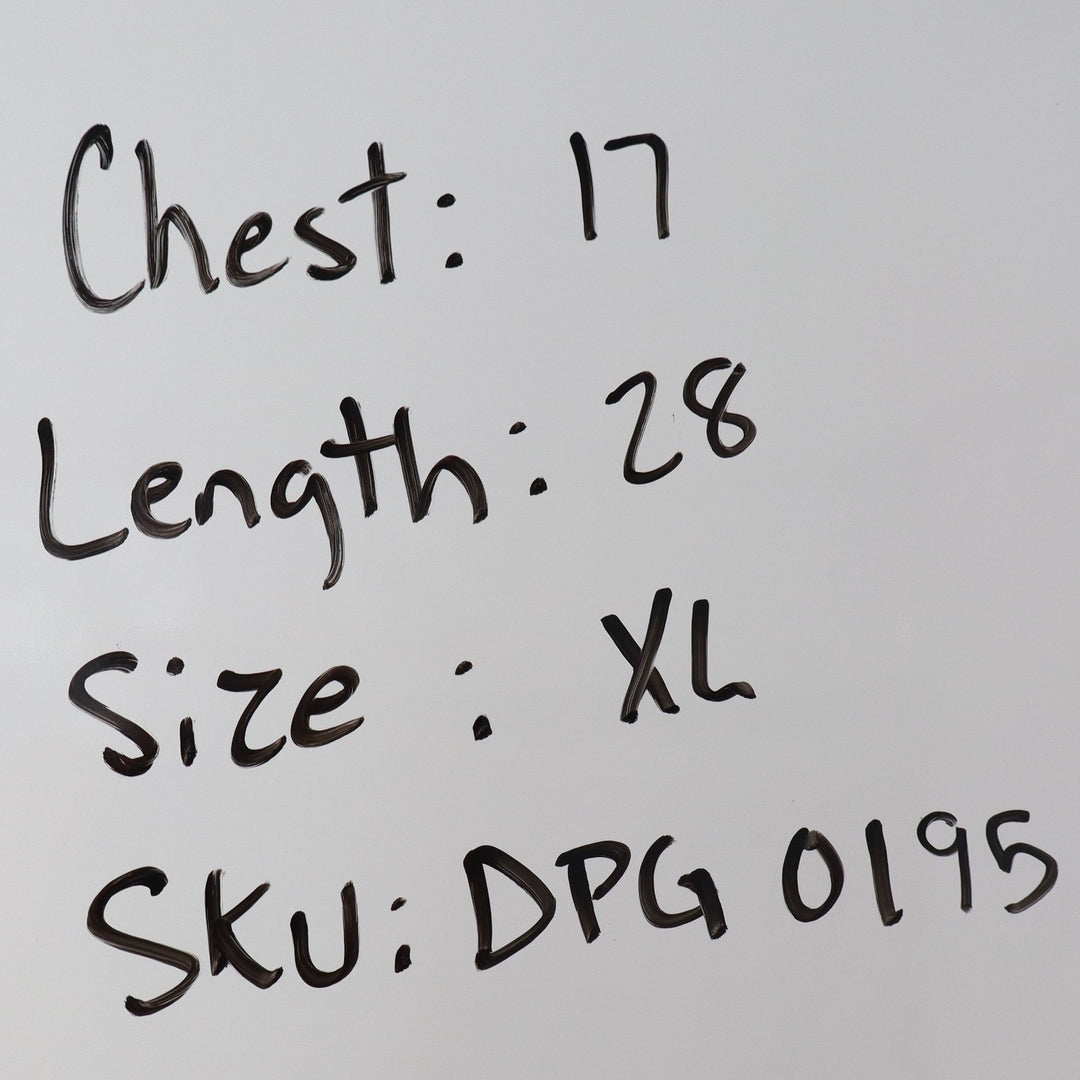 Chest: 17
Length: 28
Size: XL
SKU: DPG 0195